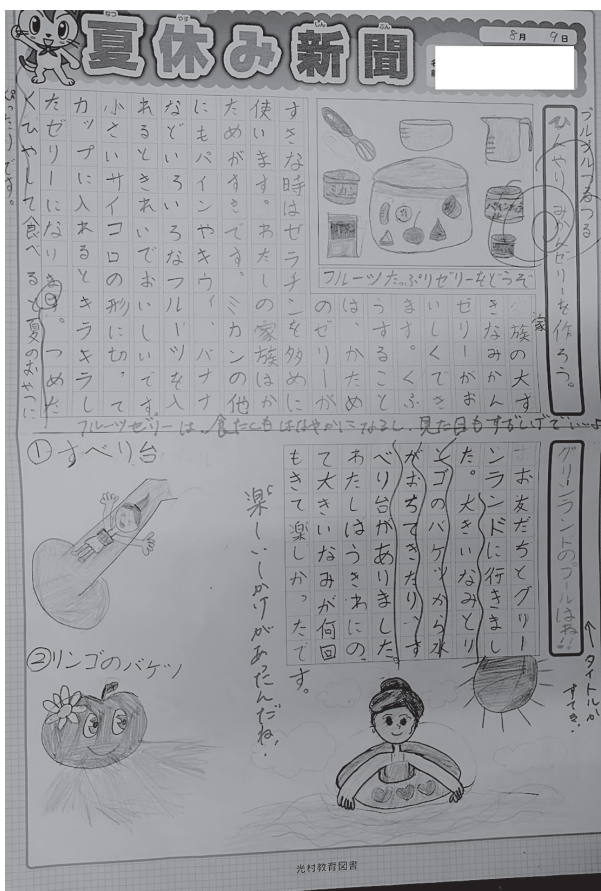 なつ やす しん ぶん
夏休み新聞
8月 9日
プルプルつるつる
ひんやり みかんゼリーを作ろう。
ミカン
パイナップル
フルーツたっぷりゼリーをどうぞ
家
族の大す
きなみかん
ゼリーがお
いしくでき
ます。くふ
うすること
は、かため
のゼリーが
すきな時はゼラチンを多めに
使います。わたしの家族はか
ためがすきです。ミカンの他
にもパインやキウイ、バナナ
などいろいろなフルーツを入
れるときれいでおいしいです。
小さいサイコロの形に切って
カップに入れるとキラキラし
たゼリーになります。つめた
くひやして食べると夏のおやつに
ぴったりです。
フルーツゼリーは、食たくもはなやかになるし、見た目もすずしげでいいよ
グリーンランドのプールはね!!
←タイトルが
すてき。
お友だちとグリー
ンランドに行きまし
た。大きいなみとり
ンゴのバケツから水
がおちてきたり、す
べり台がありました。
わたしはうきわにの、
て大きいなみが何回
もきて楽しかったです。
楽しいしかけがあったんだね!
①すべり台
②リンゴのバケツ
光村教育図書